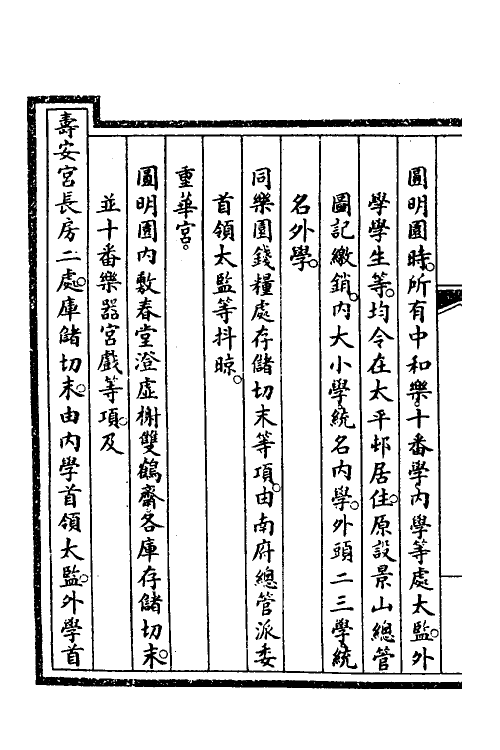 圓明園時。所有中和樂。十番學。內學等處太監。外
學學生等。均令在太平邨居住。原設景山總管
圖記繳銷。內大小學。統名內學。外頭二三學。統
名外學。
同樂園錢糧處存儲切末等項。由南府總管派委
首領太監等抖晾。
重華宮。
圓明園內敷春堂澄虛榭雙鶴齋各庫存儲切末。
並十番樂器宮戲等項。及
壽安宮長房二處。庫儲切末。由內學首領太監。外學首